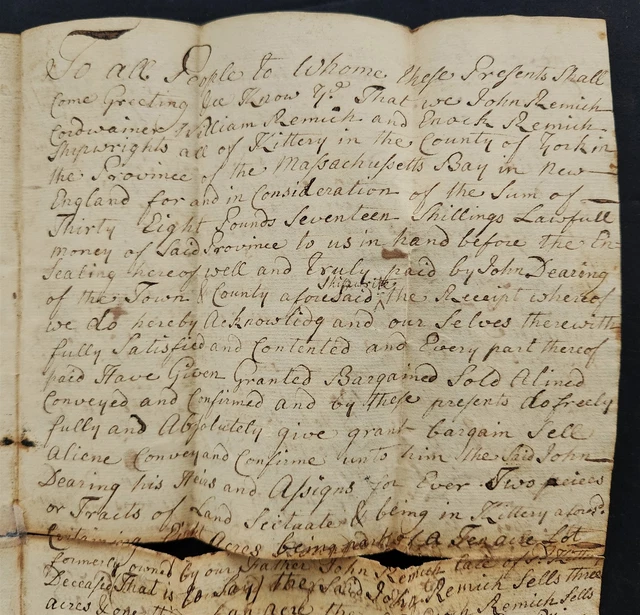 To all People to Whome these Presents Shall
Come Greeting &c Know Ye That we John Remich
Cordwainer William Remich and Enoch Remich
Shipwrights all of Kittery in the County of York in
the Province of the Massachusetts Bay in New
England for and in Consideration of the Sum of
Thirty Eight Pounds Seventeen Shillings Lawfull
money of Said Province to us in hand before the En-
sealing hereof well and Truly paid by John Dearing
of the Town & County aforesaid Shipwrite the Receipt whereof
we do hereby Acknowlidg and our Selves therewith
fully Satisfied and Contented and Every part thereof
paid Have Given Granted Bargained Sold Alined
Conveyed and Confirmed and by these presents do freely
fully and Absolutely give grant bargain Sell
Aliene Convey and Confirme unto him the Said John
Dearing his Heirs and Assigns for Ever Two peices
or Tracts of Land Scituate & being in Kittery aforsd
Acres being part of a Ten acre Lot
formerly owned by our Father John Remich Late of
Deceased That is to Say the Said John Remich Sells three
acres & one acre the Remich Sells